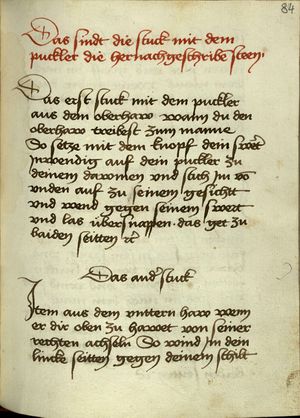 84
Das sindt die stuck mit dem
puckler die hernachgeschribe steen
Das erst stuck mit dem puckler
aus dem oberhaw wann du den
oberhaw treibest zum manne
So setze mit dem knopf dein swert
inwendig auf dein puckler zu
deinem dawmen und stich im vō
vnden auf zu seinem gesichtt
und wend gegen seinem swert
und las übersnappen das get zu
baiden seitten
Das and' stuck
Item aus dem vnttern haw wenn
er dir oben zu hawet von seiner
rechten achseln So wind in dein
lincke seitten gegen deinem schilt